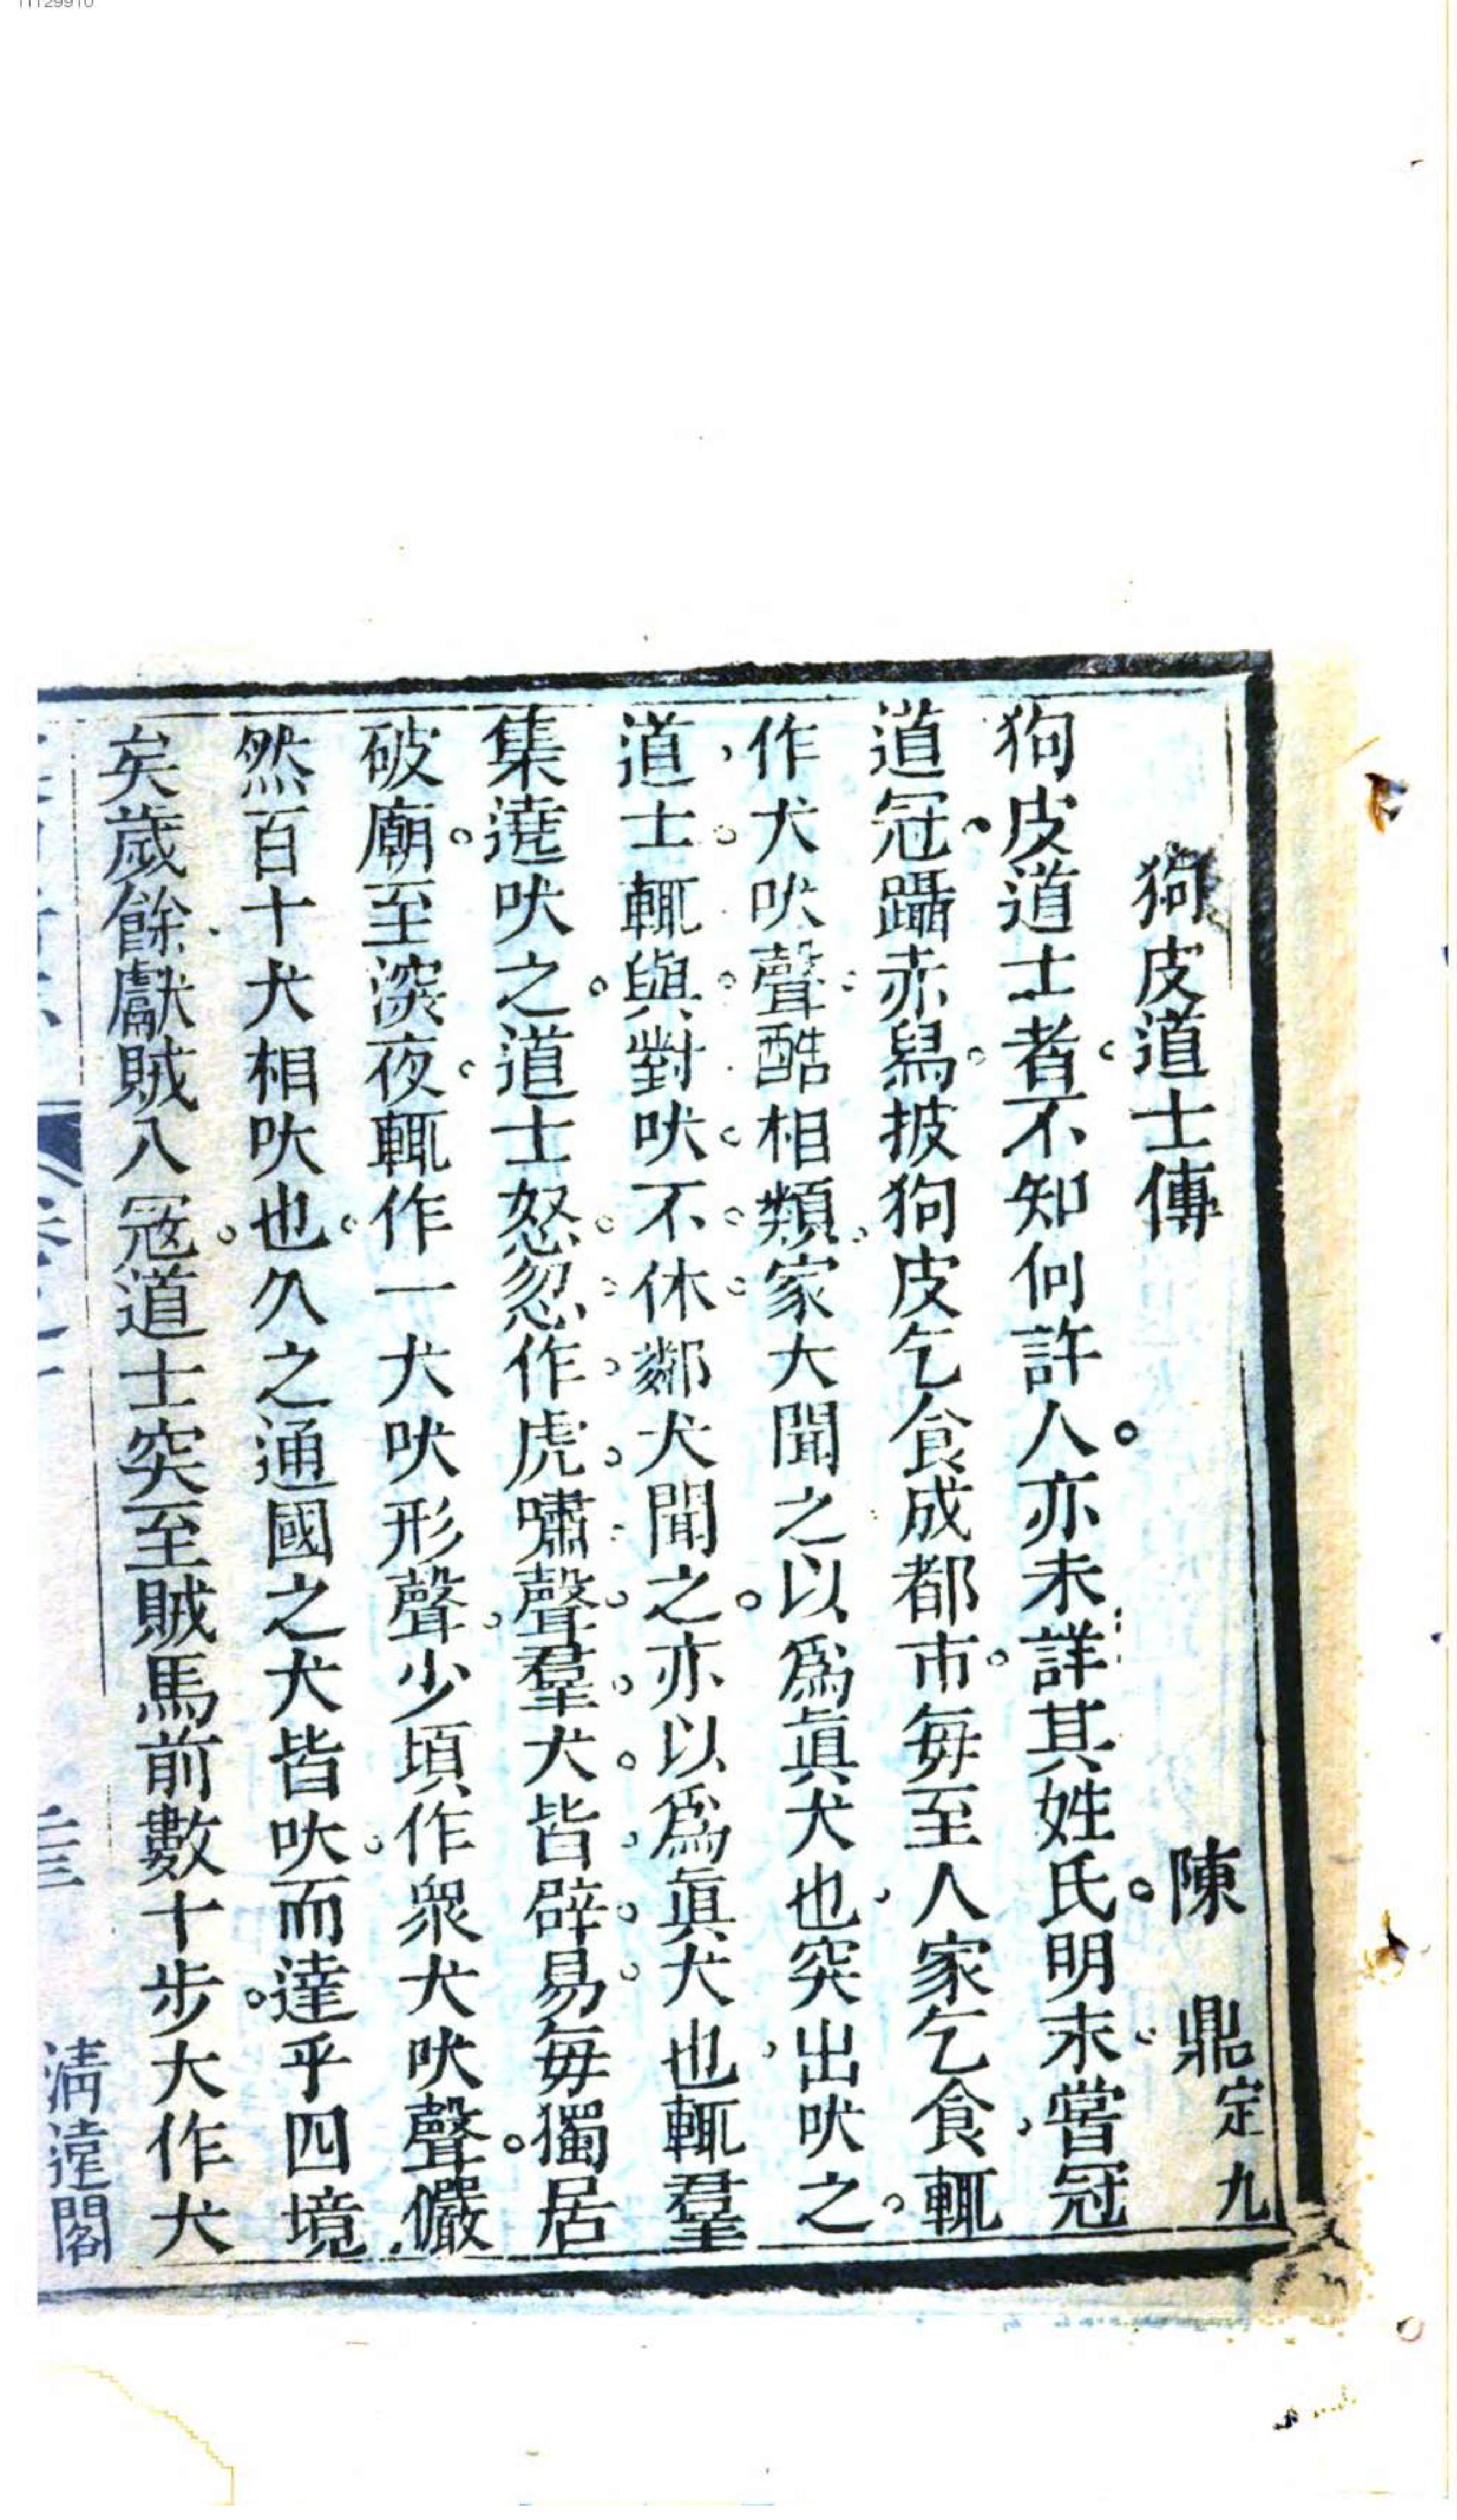 狗皮道士傳
陳鼎定九
狗皮道士者不知何許人亦未詳其姓氏明末嘗冠
道冠躡赤舄披狗皮乞食成都市每至人家乞食輒
作犬吠聲酷相類家犬聞之以爲眞犬也突出吠之
道士輒與對吠不休鄰犬聞之亦以爲眞犬也輒羣
集遶吠之道士怒忽作虎嘯聲羣犬皆辟易每獨居
破廟至深夜輒作一犬吠形聲少頃作衆犬吠聲儼
然百十犬相吠也久之通國之犬皆吠而達乎四境
矣歲餘獻賊入寇道士突至賊馬前數十步大作犬
清遠閣